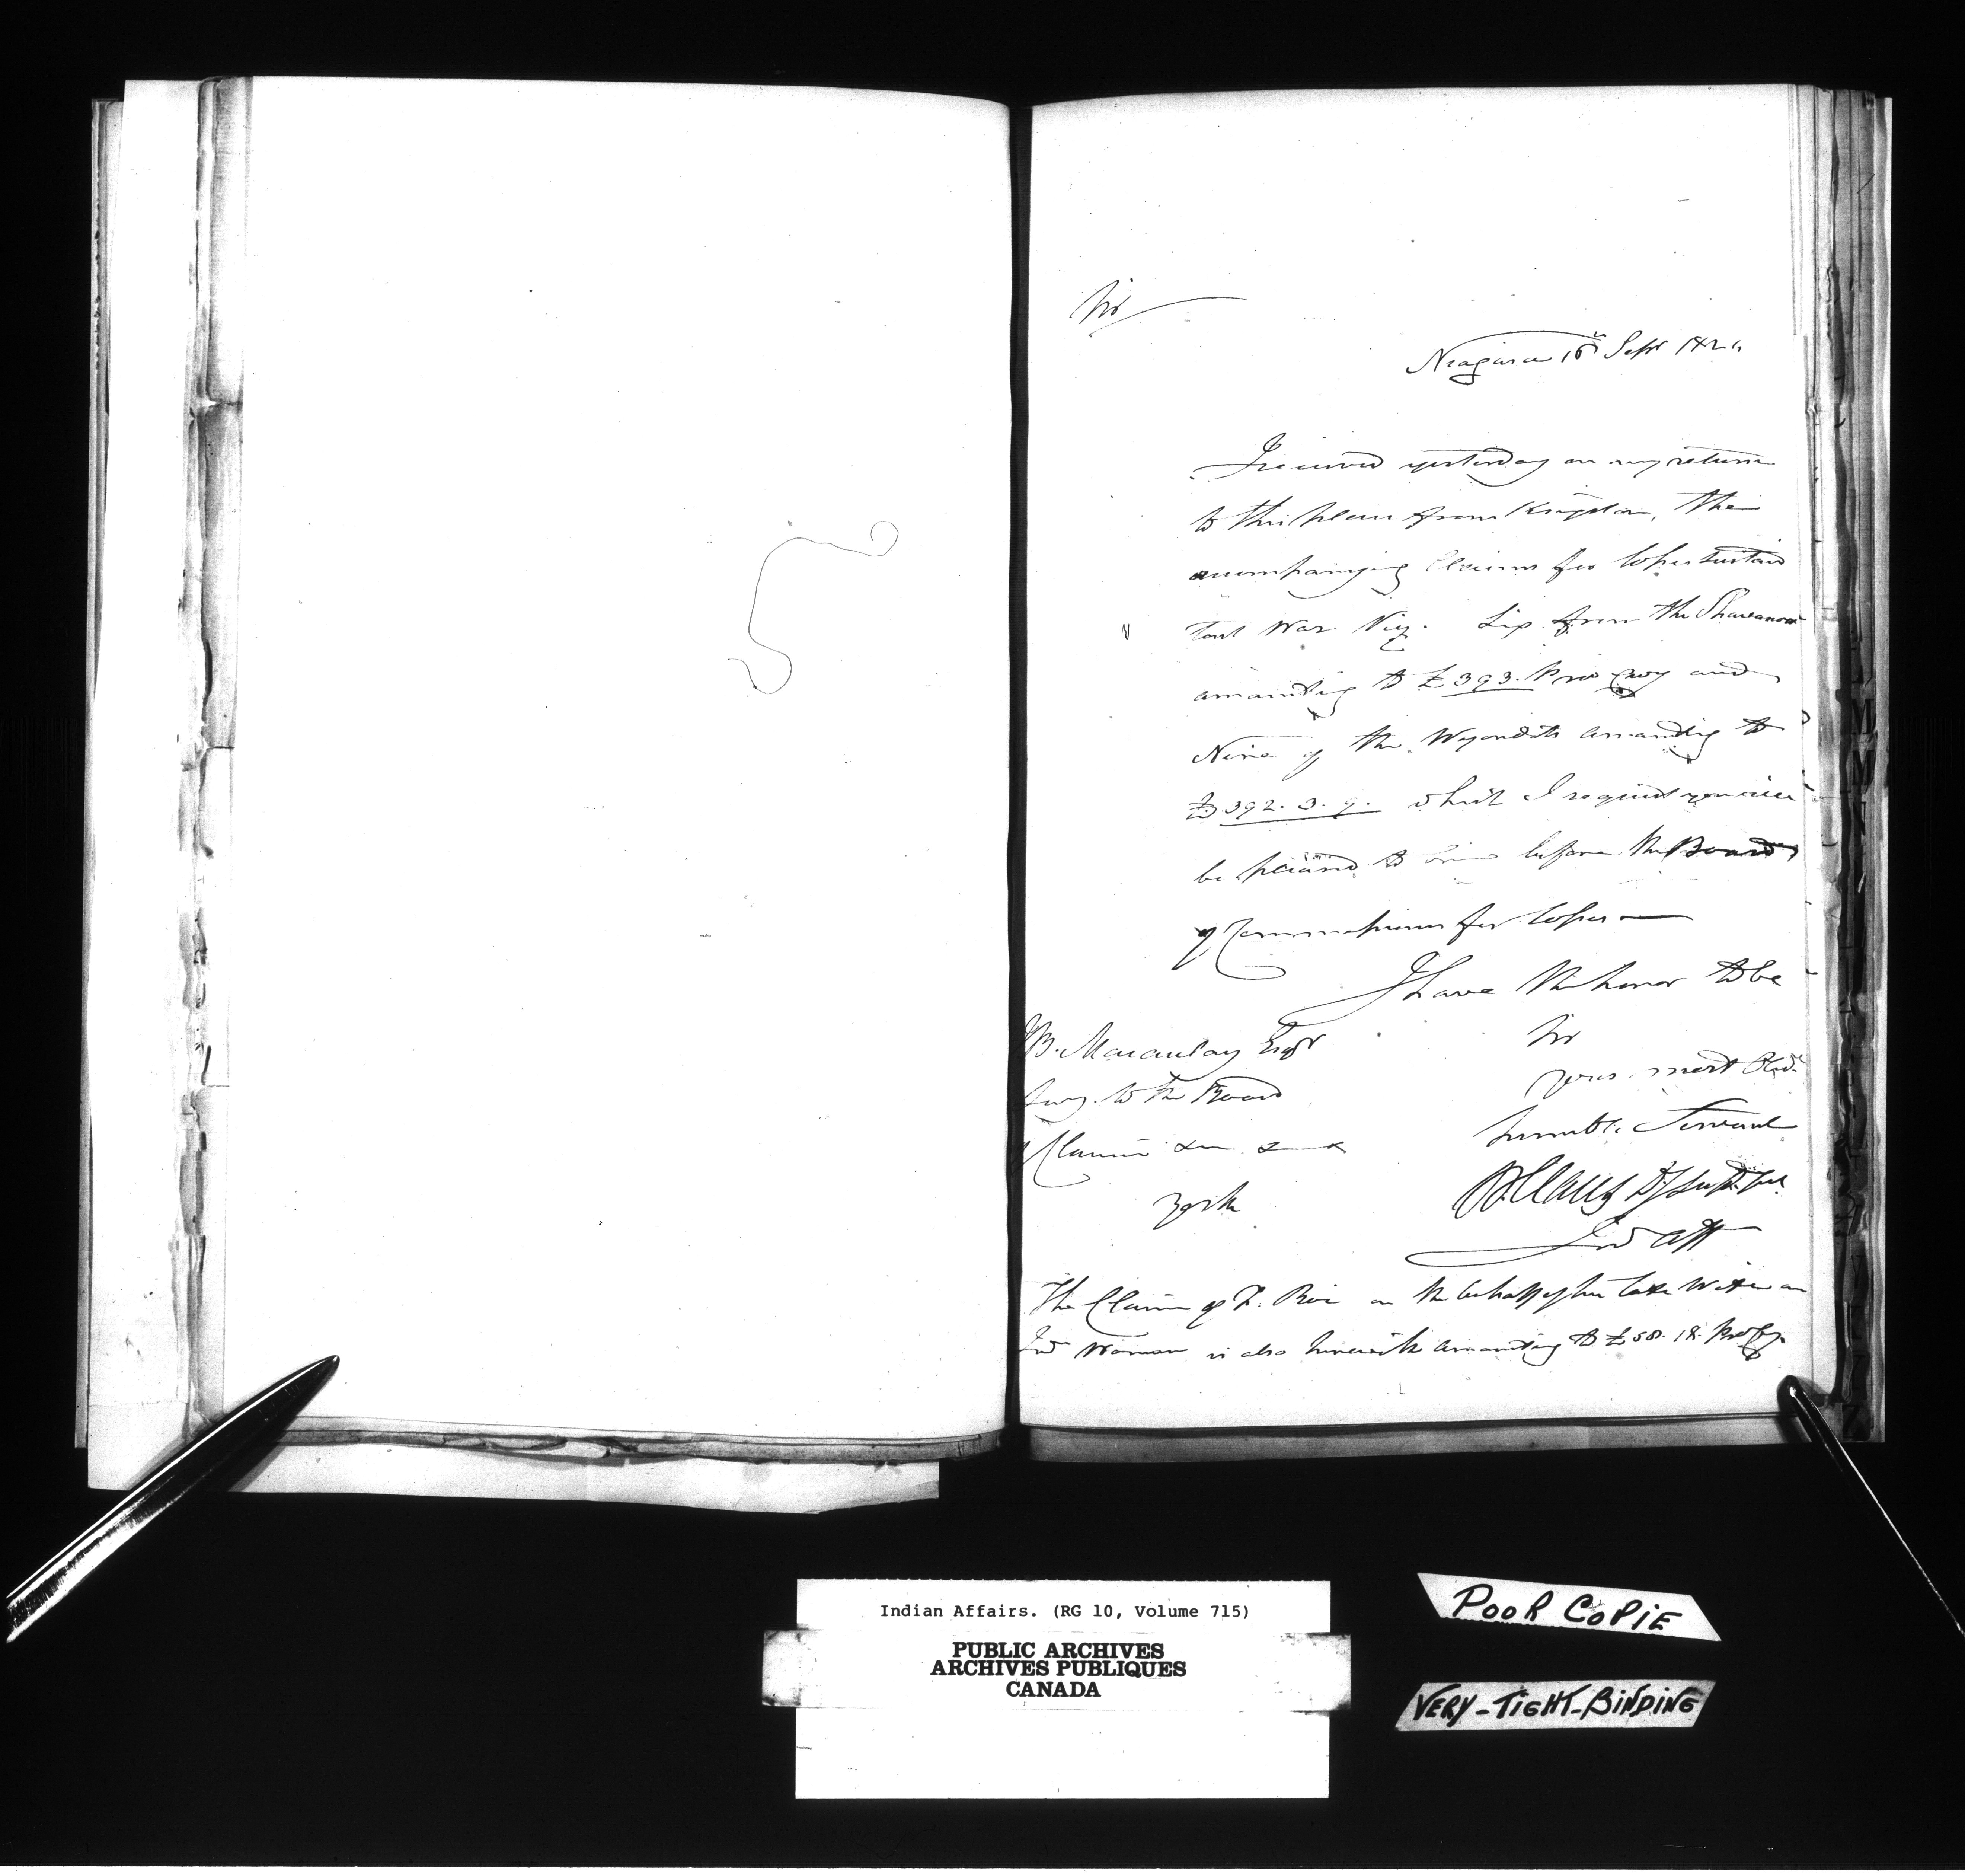 Sir
Niagara 16th Sepr 182
I received yesterday on my return
to this place from Kingston, the
accompanying Claims for losses sustaind
last War Viz. Six from the Shawanoes
amounting to £393. Pro Cuy and
Nine of the Wyandots amounting to
£392. 3. 9. which I request you will
be pleased to before the Board
of Commissioners for losses —
I have the honor to be
Sir
your most Obdt
humble Servant
W Claus D Supt Genl
Ind Aff
JB. Macaulay Esqr
Secy. to the Board
of Claims &c &c &c
York
The Claim of F. Roi on the behalf of his late Wife an
Ind Woman is also herewith amounting to £58. 18. Pro Cy
Indian Affairs. (RG 10, Volume 715)
PUBLIC ARCHIVES
ARCHIVES PUBLIQUES
CANADA
POOR COPiE
VERY-TIGHT-BiNDiNG